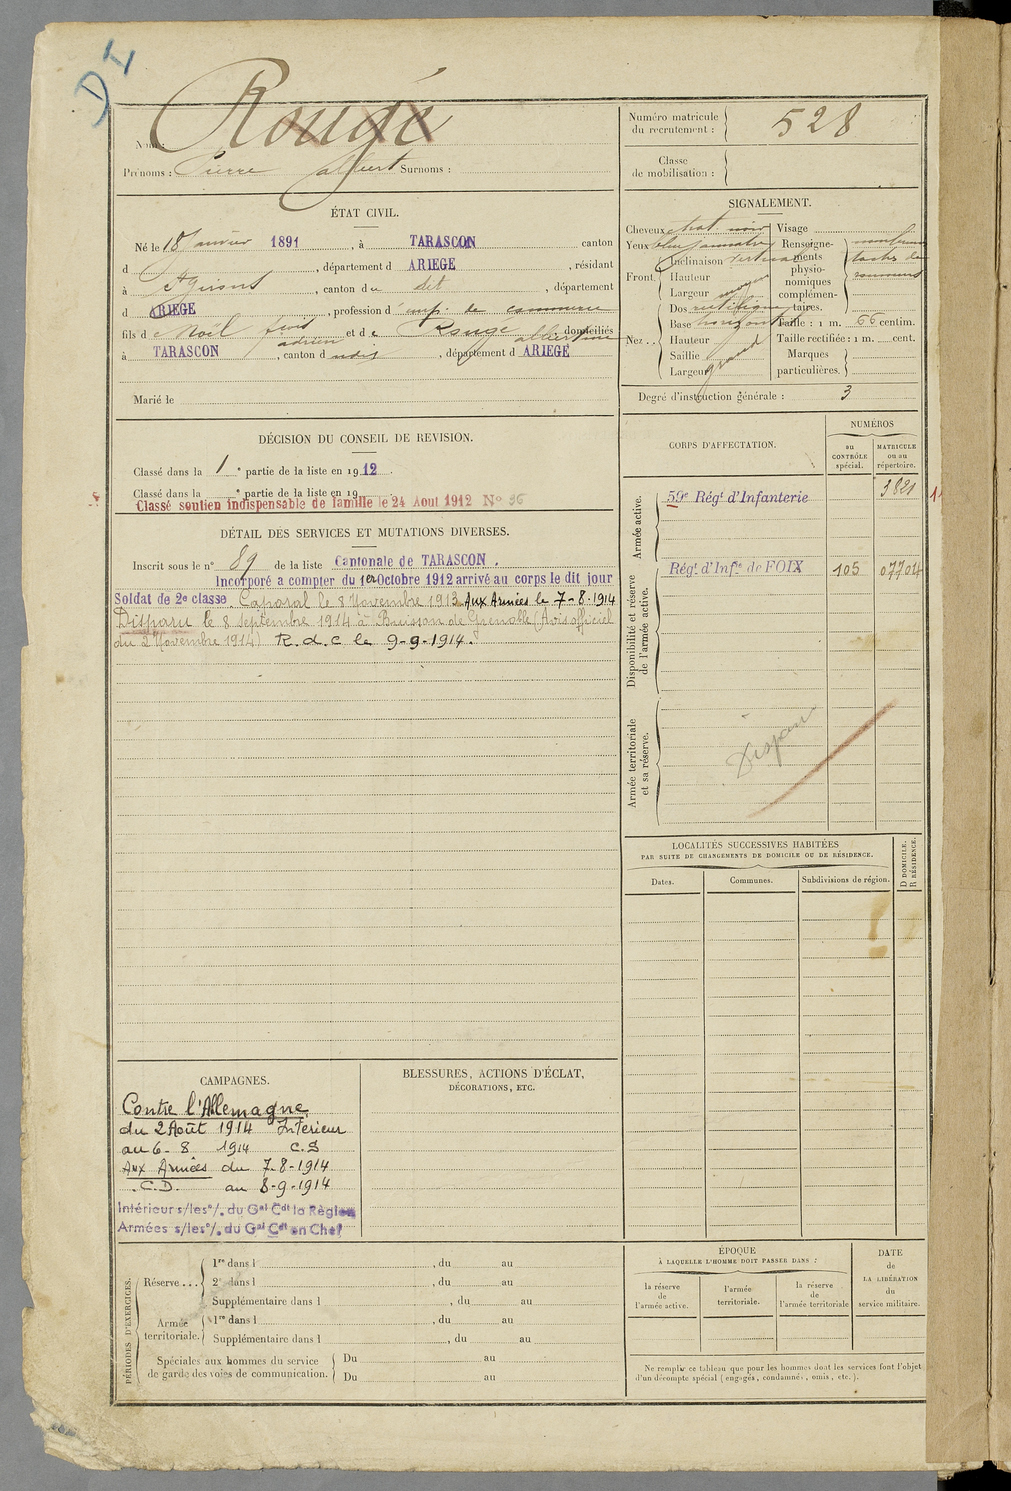 D I
Nom : Rougé
Prénoms : Pierre Albert Surnoms :
Numéro matricule du recrutement : 528
Classe de mobilisation :
ÉTAT CIVIL.
Né le 18 Janvier 1891, à TARASCON canton
d , département d ARIEGE, résidant
à St Girons, canton du dit, département
d ARIEGE, profession d' emp. de commerce
fils de Noël adrien et de Rouge albertine, domiciliés
à TARASCON, canton d udit, département d ARIEGE
Marié le
SIGNALEMENT.
Cheveux chat. noir
Yeux bleu jaunatre
Front. Inclinaison verticale
Hauteur
Largeur moyen
Dos rectiligne
Nez.. Base horizontale
Hauteur
Saillie grand
Largeur
Visage
Renseignements physionomiques complémentaires. nombreuses taches de rousseurs
Taille : 1 m. 66 centim.
Taille rectifiée : 1 m. cent.
Marques particulières.
Degré d'instruction générale : 3
DÉCISION DU CONSEIL DE REVISION.
Classé dans la 1 e partie de la liste en 1912.
Classé dans la e partie de la liste en 19
Classé soutien indispensable de famille le 24 Aout 1912 N° 96
DÉTAIL DES SERVICES ET MUTATIONS DIVERSES.
Inscrit sous le n° 89 de la liste Cantonale de TARASCON.
Incorporé à compter du 1er Octobre 1912 arrivé au corps le dit jour
Soldat de 2e classe. Caporal le 8 Novembre 1913. Aux Armées le 7-8-1914
Disparu le 8 Septembre 1914 à Buisson de Grenoble (Avis officiel
du 2 Novembre 1914) R.d.c le 9-9-1914.
CORPS D'AFFECTATION.
NUMÉROS
au CONTRÔLE spécial.
MATRICULE ou au répertoire.
Armée active.
59e Régt d'Infanterie 3821
Disponibilité et réserve de l'armée active.
Régt d'Infie de FOIX 105 07704
Armée territoriale et sa réserve.
Disparu
LOCALITÉS SUCCESSIVES HABITÉES
PAR SUITE DE CHANGEMENTS DE DOMICILE OU DE RÉSIDENCE.
Dates.
Communes.
Subdivisions de région.
D DOMICILE.
R RÉSIDENCE.
CAMPAGNES.
Contre l'Allemagne
du 2 Août 1914 Intérieur
au 6-8 1914 C.S
Aux Armées du 7-8-1914
C.D. au 8-9-1914
Intérieur s/les o/. du Gal Cdt la Région
Armées s/les o/. du Gal Cdt en Chef
BLESSURES, ACTIONS D'ÉCLAT,
DÉCORATIONS, ETC.
PÉRIODES D'EXERCICES.
Réserve... 1re dans l , du au
2e dans l , du au
Supplémentaire dans l , du au
Armée territoriale. 1re dans l , du au
Supplémentaire dans l , du au
Spéciales aux hommes du service de garde des voies de communication. Du au
Du au
ÉPOQUE
À LAQUELLE L'HOMME DOIT PASSER DANS :
la réserve de l'armée active.
l'armée territoriale.
la réserve de l'armée territoriale
DATE de LA LIBÉRATION du service militaire.
Ne remplir ce tableau que pour les hommes dont les services font l'objet
d'un décompte spécial (engagés, condamnés, omis, etc.).